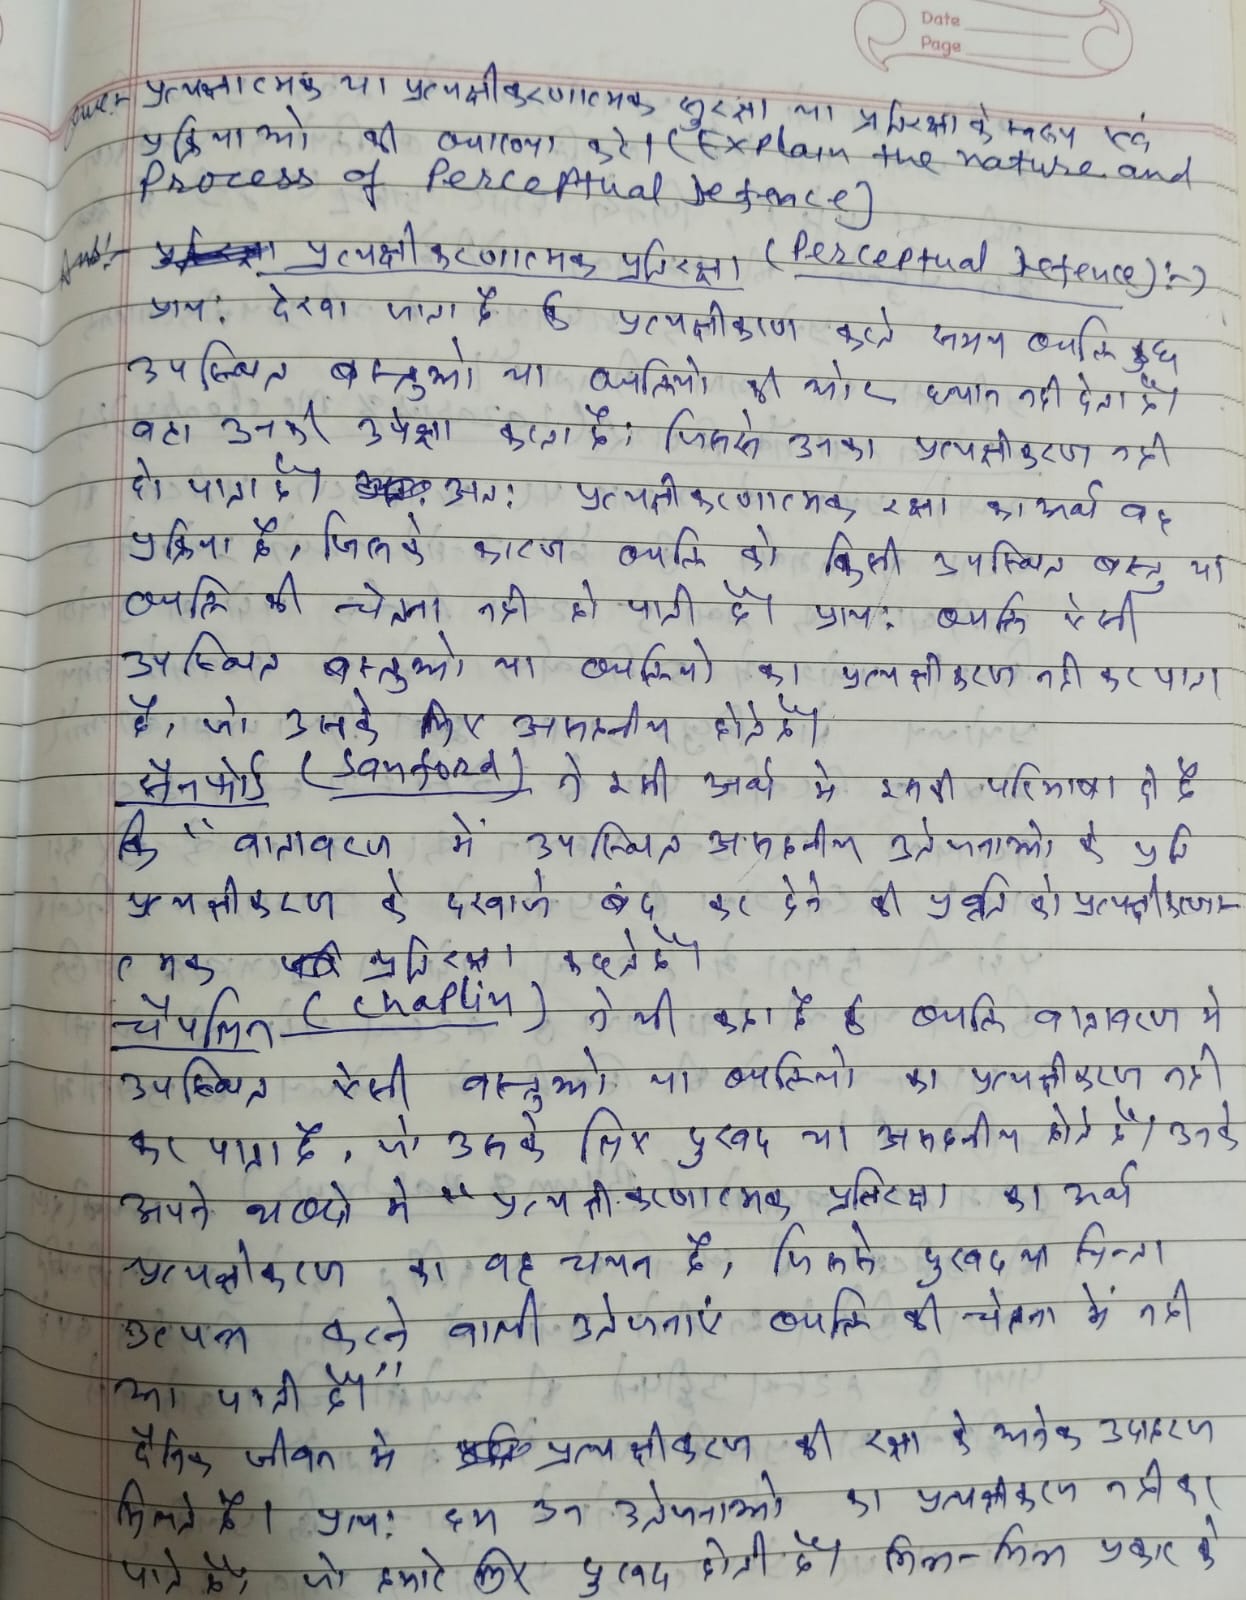 Date
Page
Ques:- प्रत्यक्षात्मक या प्रत्यक्षीकरणात्मक सुरक्षा या प्रतिरक्षा के स्वरूप एवं
प्रक्रियाओं की व्याख्या करे। (Explain the nature and
Process of Perceptual Defence)
Ans:- प्रत्यक्षीकरणात्मक प्रतिरक्षा (Perceptual Defence):-)
प्राय: देखा जाता है कि प्रत्यक्षीकरण करते समय व्यक्ति कुछ
उपस्थित वस्तुओं या व्यक्तियों की ओर ध्यान नहीं देता है।
वह उनकी उपेक्षा करता है। जिससे उनका प्रत्यक्षीकरण नही
हो पाता है। अत: प्रत्यक्षीकरणात्मक रक्षा का अर्थ वह
प्रक्रिया है, जिसके कारण व्यक्ति को किसी उपस्थित वस्तु या
व्यक्ति की चेतना नही हो पाती है। प्राय: व्यक्ति ऐसी
उपस्थित वस्तुओं या व्यक्तियों का प्रत्यक्षीकरण नही कर पाता
है, जो उसके लिए असहनीय होते है।
सैनफोर्ड (Sanford) ने इसी अर्थ मे इसकी परिभाषा दी है
कि "वातावरण में उपस्थित असहनीय उत्तेजनाओं के प्रति
प्रत्यक्षीकरण के दरवाजे बंद कर देने की प्रवृति को प्रत्यक्षीकरणा-
त्मक प्रतिरक्षा कहते है।
चैपलिन (Chaplin) ने भी कहा है कि व्यक्ति वातावरण मे
उपस्थित ऐसी वस्तुओं या व्यक्तियों का प्रत्यक्षीकरण नही
कर पाता है, जो उसके लिए दुखद या असहनीय होते है। उनके
अपने शब्दो मे "प्रत्यक्षीकरणात्मक प्रतिरक्षा का अर्थ
प्रत्यक्षीकरण का वह चयन है, जिससे दुखद या चिन्ता
उत्पन्न करने वाली उत्तेजनाएं व्यक्ति की चेतना में नही
आ पाती है।"
दैनिक जीवन मे प्रत्यक्षीकरण की रक्षा के अनेक उदाहरण
मिलते है। प्राय: हम उन उत्तेजनाओं का प्रत्यक्षीकरण नही कर
पाते है, जो हमारे लिए दुखद होती है। भिन्न-भिन्न प्रकार के